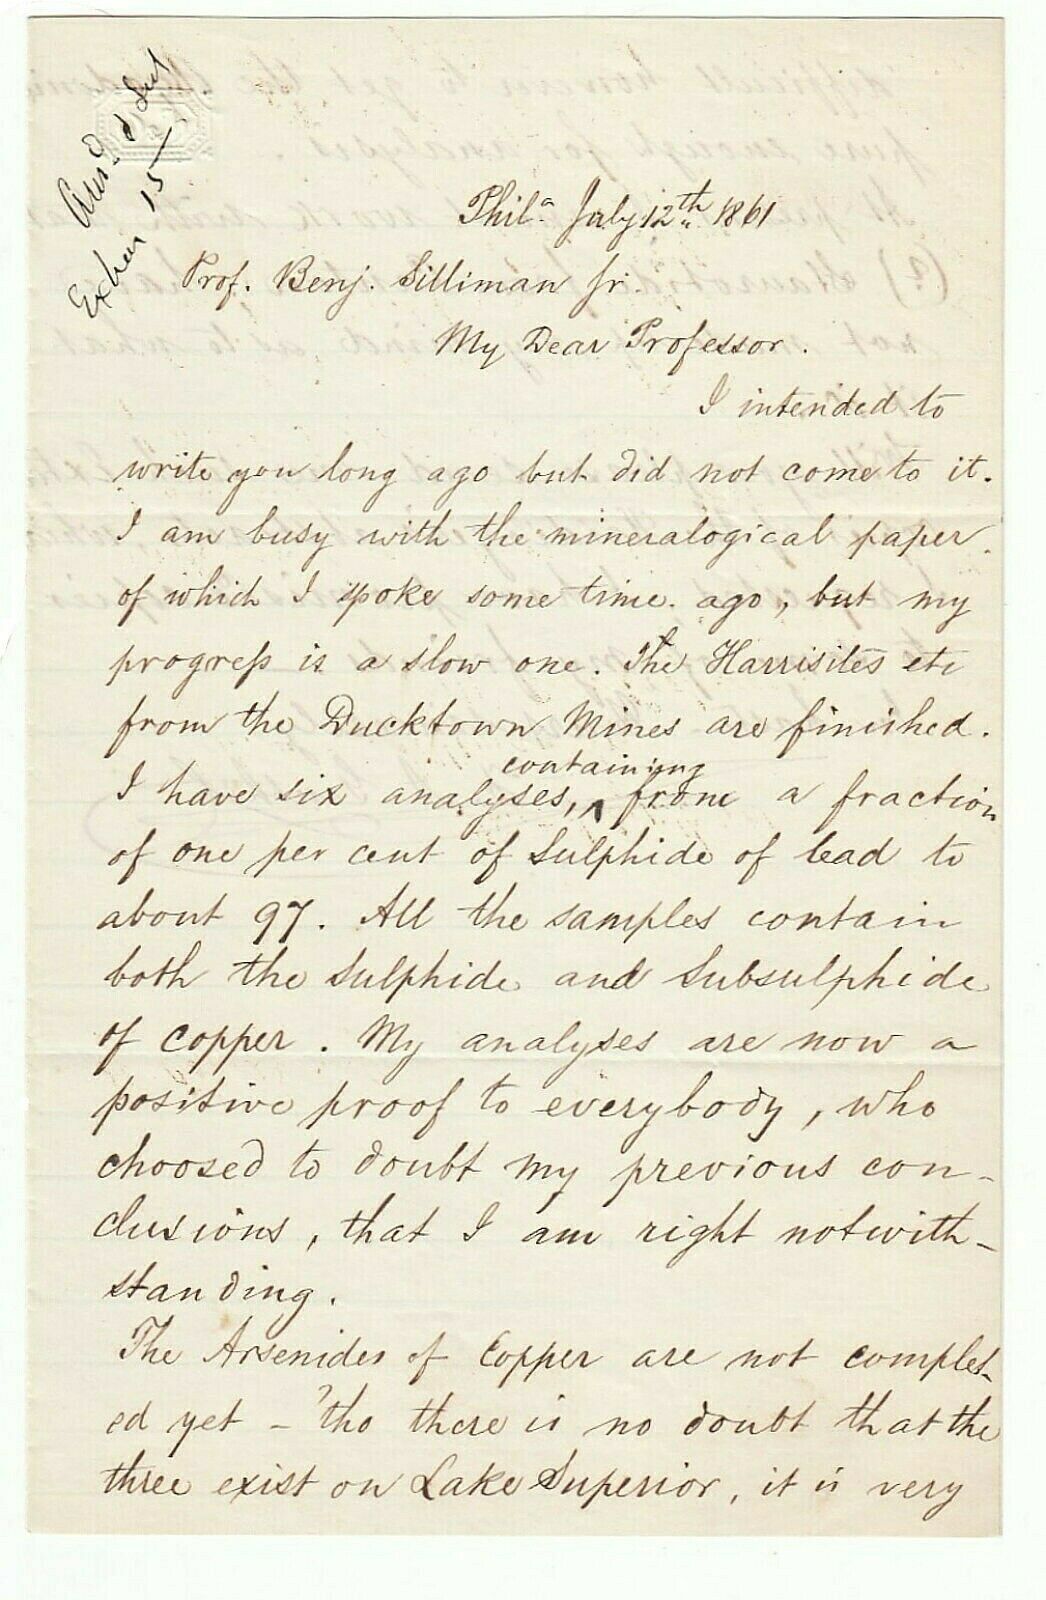 Ans. d
15
Phil.a July 12th 1861
Prof. Benj. Silliman Jr.
My Dear Professor.
I intended to
write you long ago but did not come to it.
I am busy with the mineralogical paper
of which I spoke some time ago, but my
progress is a slow one. The Harrisites etc
from the Ducktown Mines are finished.
containing
I have six analyses, ^ from a fraction
of one per cent of Sulphide of lead to
about 97. All the samples contain
both the Sulphide and Subsulphide
of Copper. My analyses are now a
positive proof to everybody, who
choosed to doubt my previous con-
clusions, that I am right notwith-
standing.
The Arsenides of Copper are not complet-
ed yet - 'tho there is no doubt that the
three exist on Lake Superior, it is very